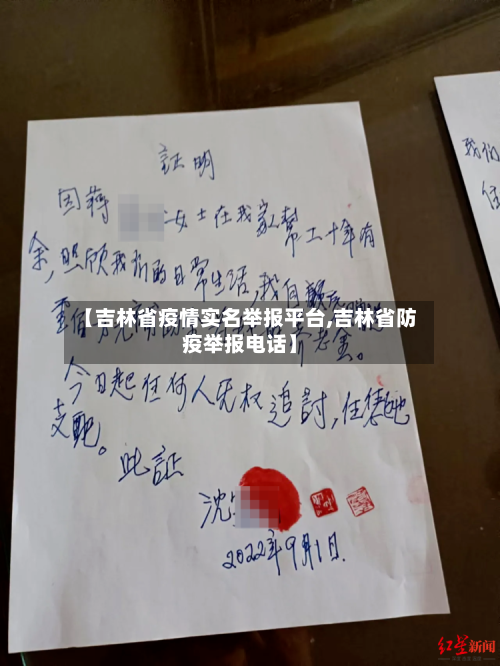 証明
因蒋
女士在我家帮工十年有
余,照顾我们的日常生活,我自愿
【吉林省疫情实名举报平台,吉林省防
疫举报电话】
养老金。
今日起任何人无权追討,任憑她
支配。
此証
沈
2022年9月1日.
我们
任
红星新闻